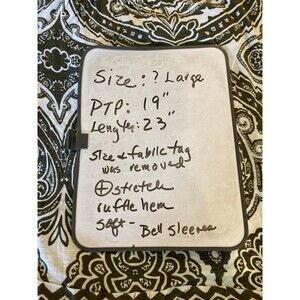 Size: ? Large
PTP: 19"
Length: 23"
Size & fabric tag
was removed
+ stretch
ruffle hem
Soft -
Bell Sleeves